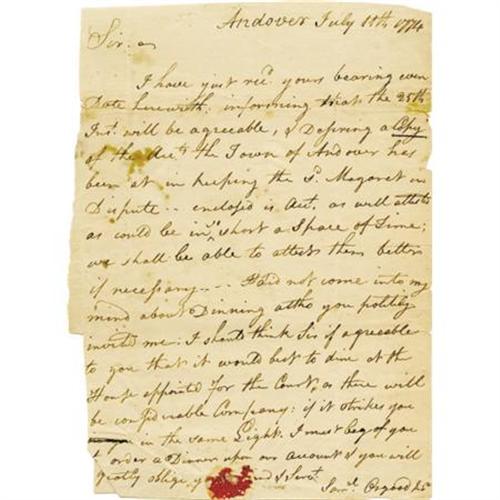 Andover July 18th 1774
Sir.
I have just recd. yours bearing even
Date herewith, informing that the 25th
Inst. will be agreeable, & Desiring a Copy
of the Acct. the Town of Andover has
been at in keeping the sd. Magaret in
Dispute -- enclosed is Act. as well
as could be in so short a Space of Time;
we shall be able to attest them better
if necessary --- It did not come into my
mind about Dinning altho you politely
invited me: I should think Sir if agreeable
to you that it would best to dine at the
House appointed for the Court, as there will
be considerable Company: if it strikes you
in the same Light. I must beg of you
to order a Dinner upon our account & you will
greatly oblige, your & Servt.
Saml. Osgood